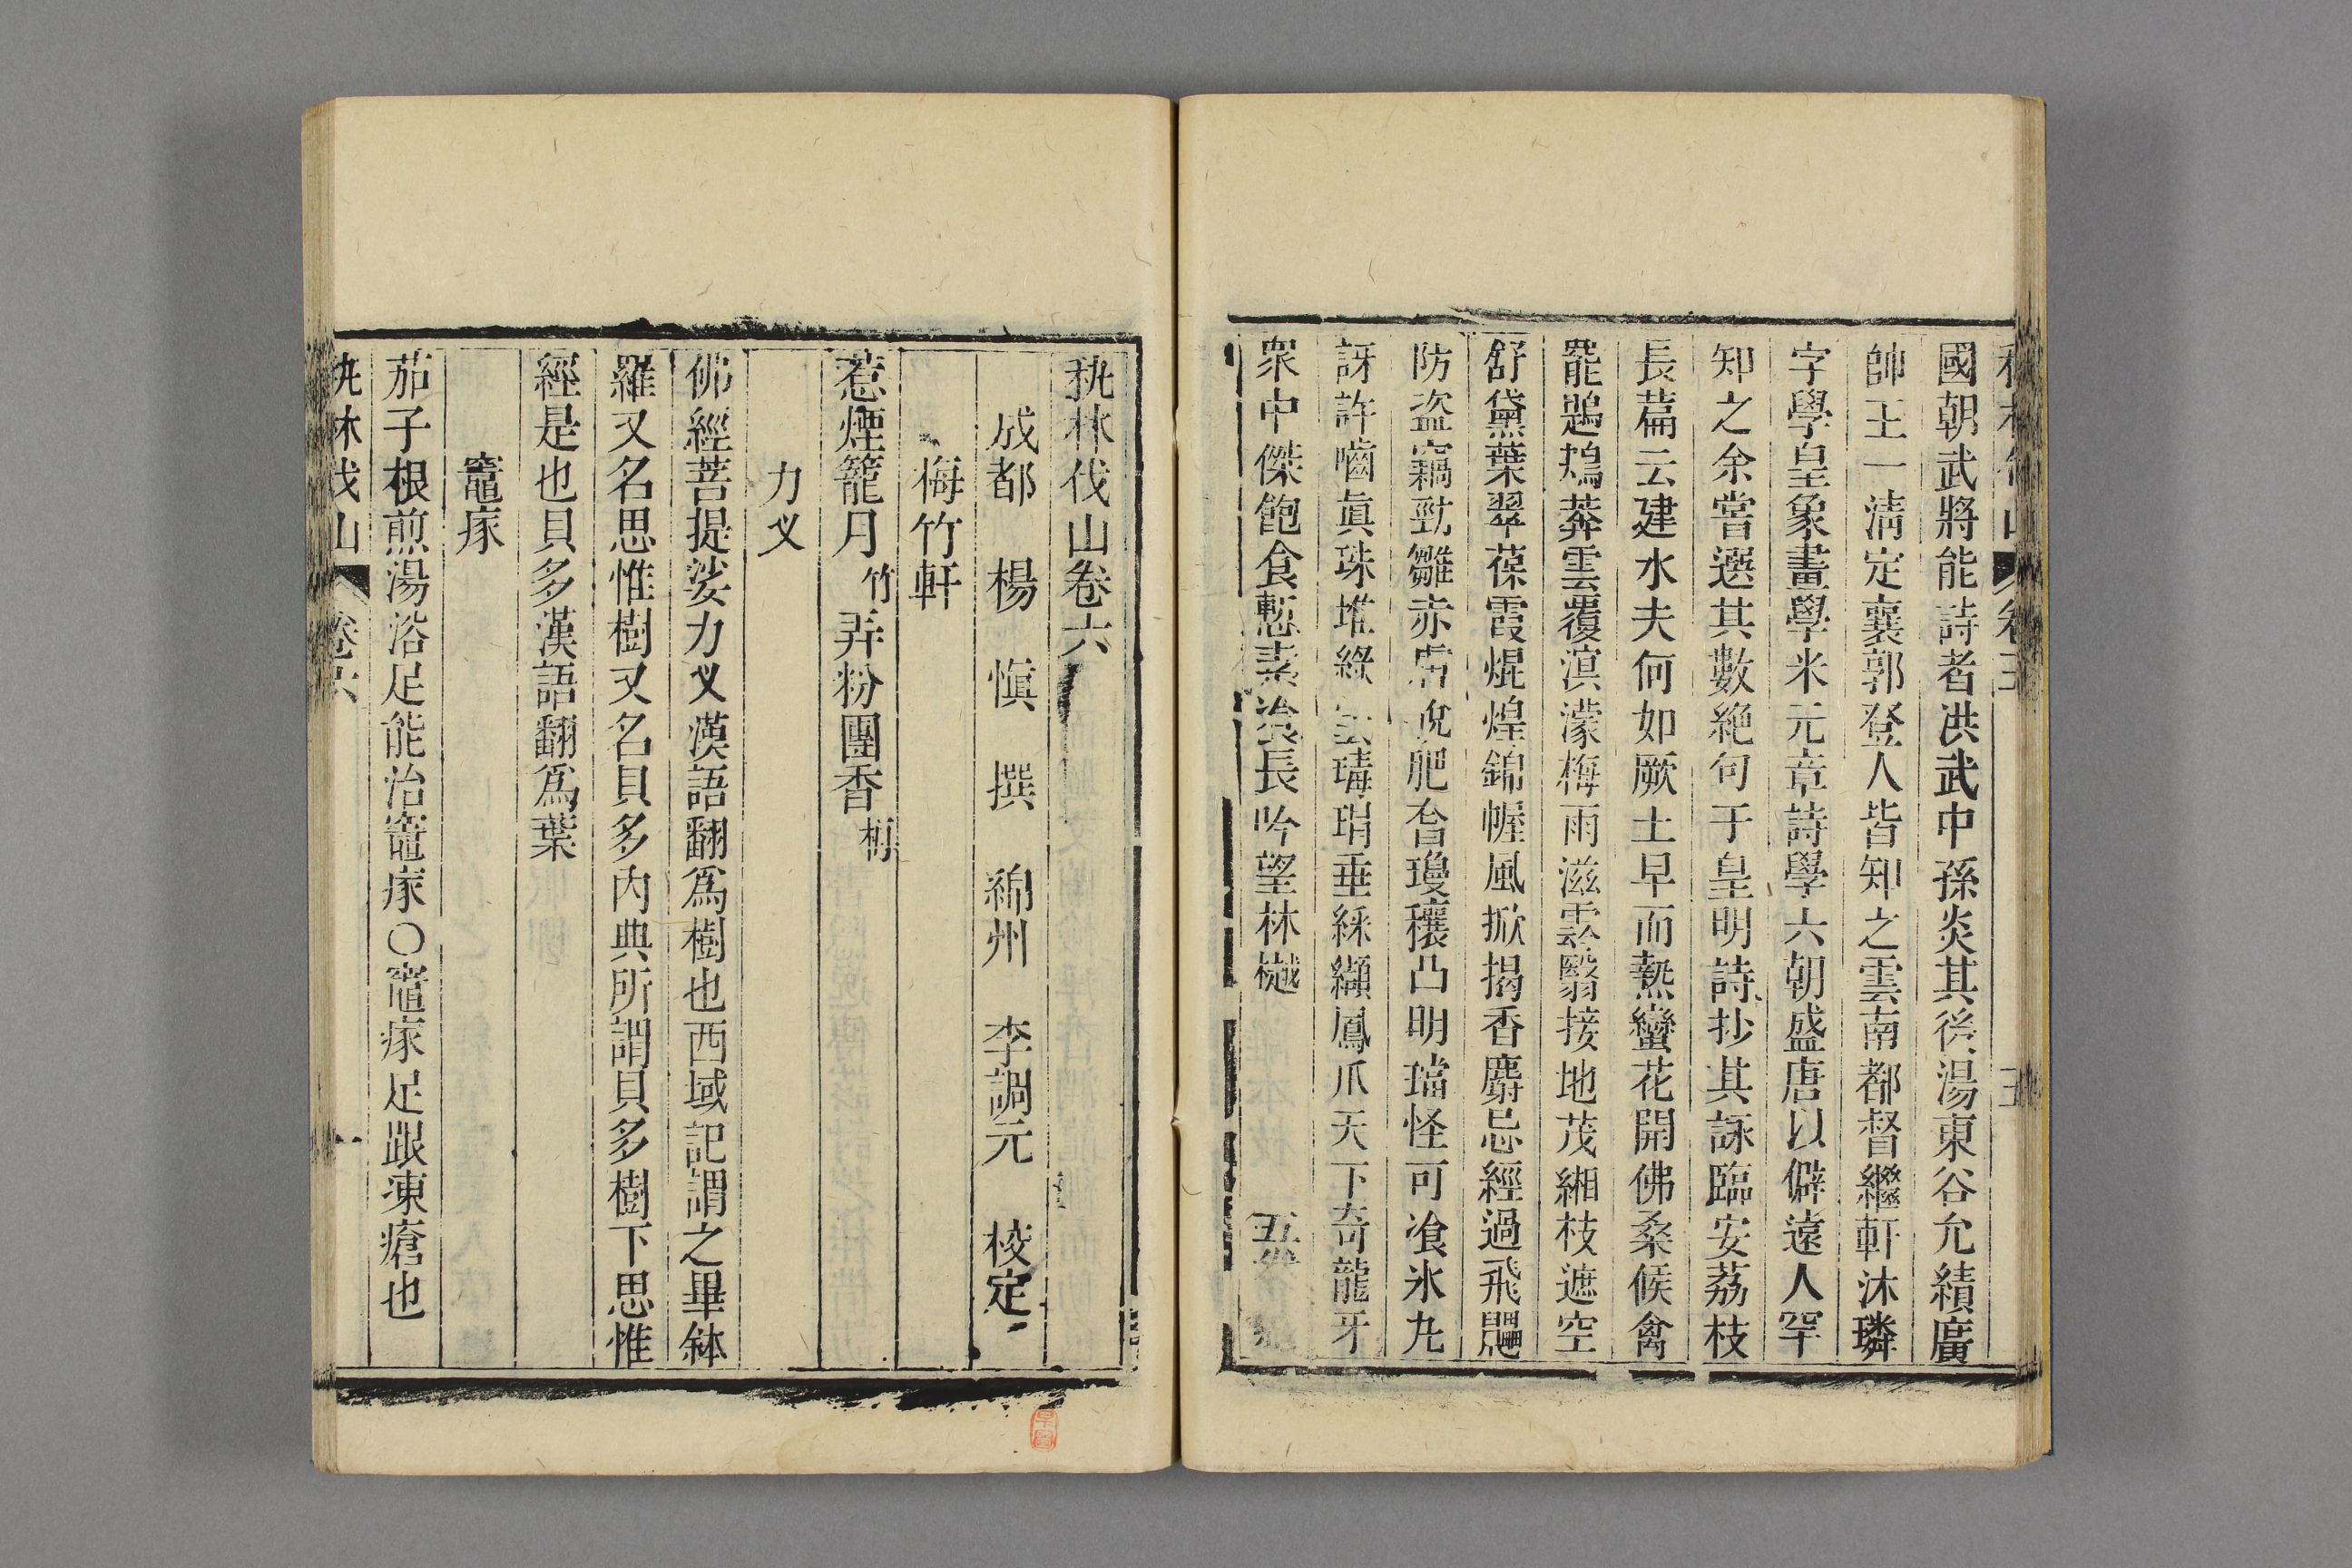 國朝武將能詩者洪武中孫炎其後湯東谷允績廣
帥王一清定襄郭登人皆知之雲南都督繼軒沐璘
字學皇象畫學米元章詩學六朝盛唐以僻遠人罕
知之余嘗選其數絶句于皇明詩抄其詠臨安荔枝
長篇云建水夫何如厥土早而熱蠻花開佛桑候禽
罷鶗鴂莽雲覆溟濛梅雨滋雲翳接地茂緗枝遮空
舒黛葉翠葆霞焜煌錦幄風掀揭香麝忌經過飛鼺
防盜竊勁雛赤肥瓊穰凸明璫怪可飡氷丸
訝許嚙眞珠堆綠瑇瑁垂綵纈鳳爪天下奇龍牙
衆中傑飽食慙素飡長吟望林樾
秇林伐山卷六
成都 楊 愼 撰 綿州 李調元 校定
梅竹軒
惹煙籠月竹弄粉團香梅
力义
佛經菩提娑力义漢語翻爲樹也西域記謂之畢鉢
羅又名思惟樹又名貝多内典所謂貝多樹下思惟
經是也貝多漢語翻爲葉
竈瘃
茄子根煎湯浴足能治竈瘃○竈瘃足跟凍瘡也
秇林伐山 卷六 一